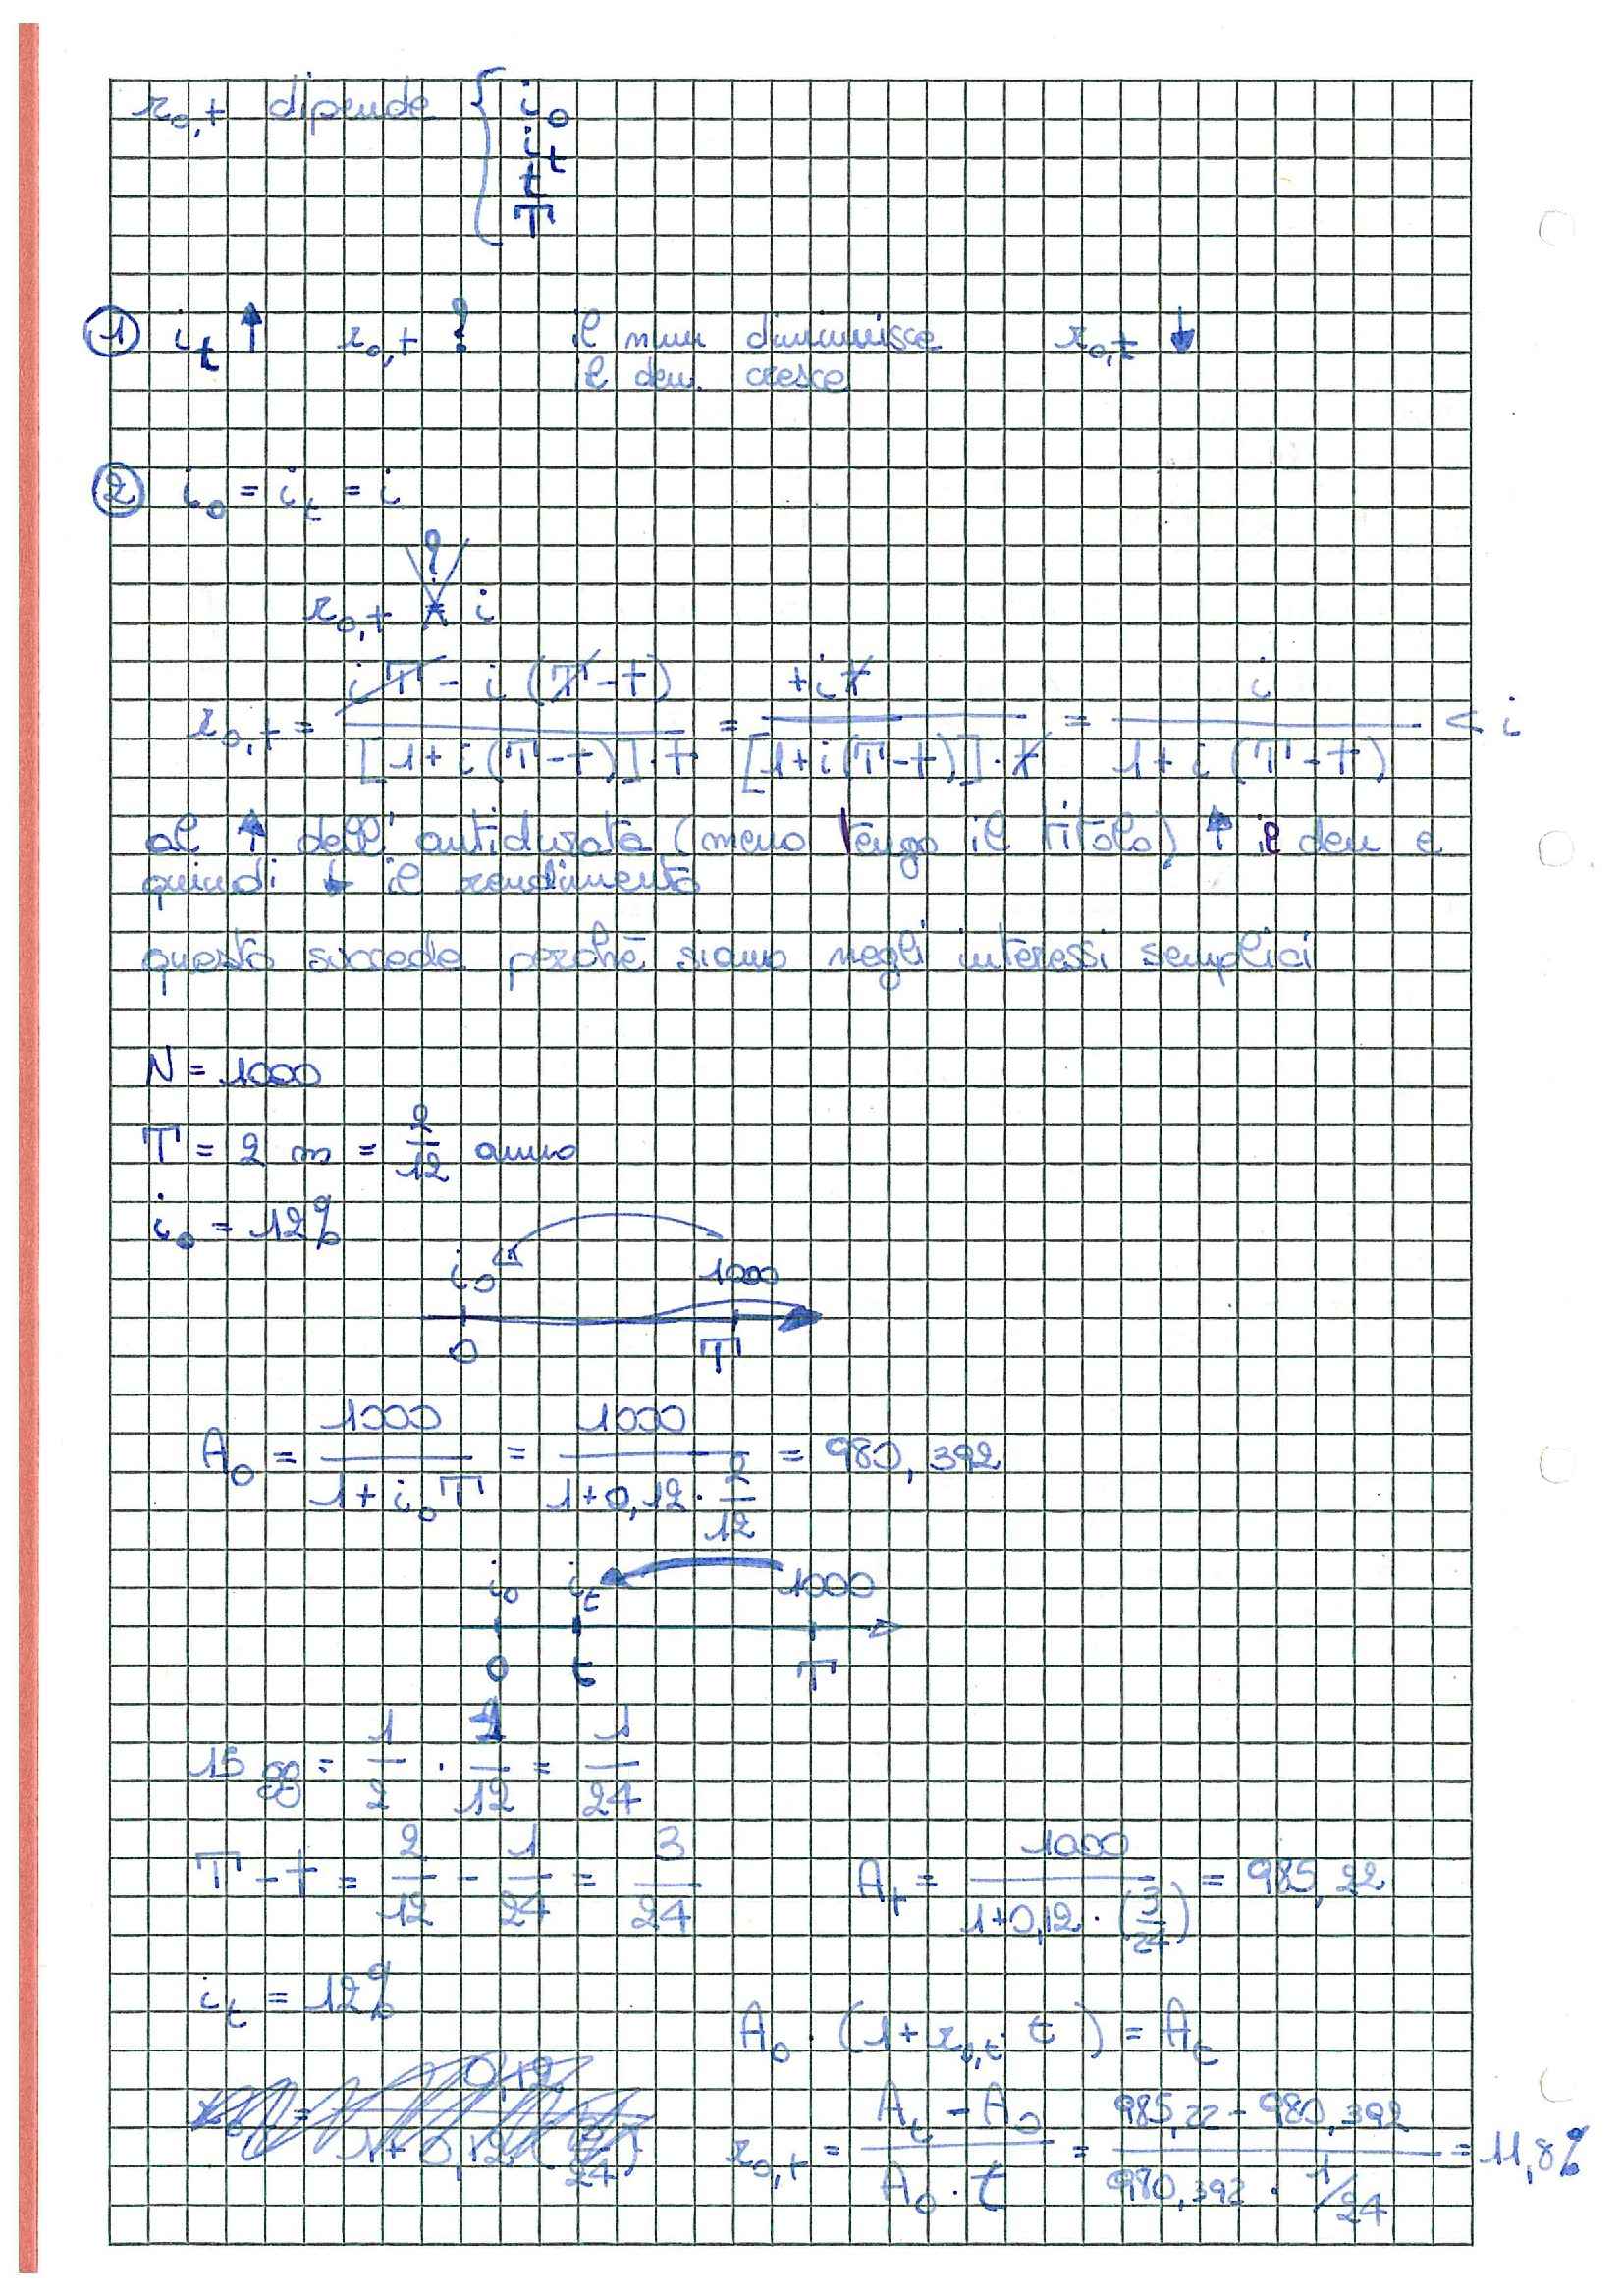 r₀,t dipende { i₀
iₜ
t
T
① iₜ ↑ r₀,t ? il num diminuisce r₀,t ↓
il den. cresce
② i₀ = iₜ = i
?
r₀,t = i
r₀,t = (iT - i(T-t)) / ([1+i(T-t)]·t) = +it / ([1+i(T-t)]·t) = i / (1+i(T-t)) < i
al ↑ dell'antidurata (meno tengo il titolo) ↑ il den e
quindi ↓ il rendimento
questo succede perchè siamo negli interessi semplici
N = 1000
T = 2 m = 2/12 anno
i₀ = 12%
i₀ 1000
0 T
A₀ = 1000 / (1+i₀T) = 1000 / (1+0,12·2/12) = 980,392
i₀ iₜ 1000
0 t T
15 gg = 1/2 · 1/12 = 1/24
T-t = 2/12 - 1/24 = 3/24 Aₜ = 1000 / (1+0,12·(3/24)) = 985,22
iₜ = 12%
A₀·(1+r₀,t·t) = Aₜ
r₀,t = (Aₜ - A₀) / (A₀·t) = (985,22 - 980,392) / (980,392 · 1/24) = 11,8%